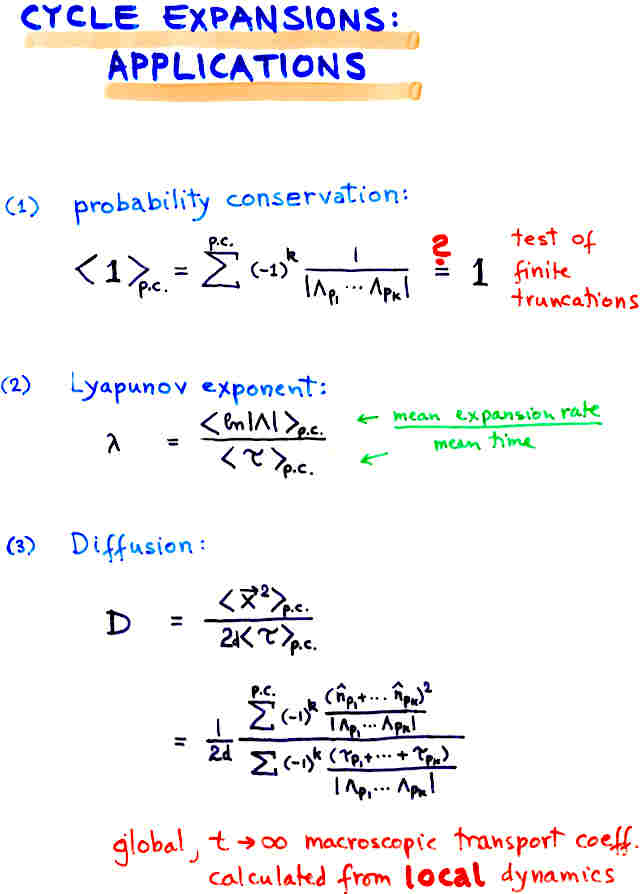 CYCLE EXPANSIONS:
APPLICATIONS
(1) probability conservation:
<1>p.c. = Σ^{p.c.} (-1)^k 1 / |Λp₁ ··· Λpₖ| ≟ 1
test of
finite
truncations
(2) Lyapunov exponent:
λ = <ln|Λ|>p.c. / <τ>p.c.
← mean expansion rate
← mean time
(3) Diffusion:
D = <x⃗²>p.c. / 2d<τ>p.c.
= 1/2d Σ^{p.c.} (-1)^k (n̂p₁+··· n̂pₖ)² / |Λp₁ ··· Λpₖ|
Σ (-1)^k (τp₁+··· + τpₖ) / |Λp₁ ··· Λpₖ|
global, t → ∞ macroscopic transport coeff.
calculated from local dynamics